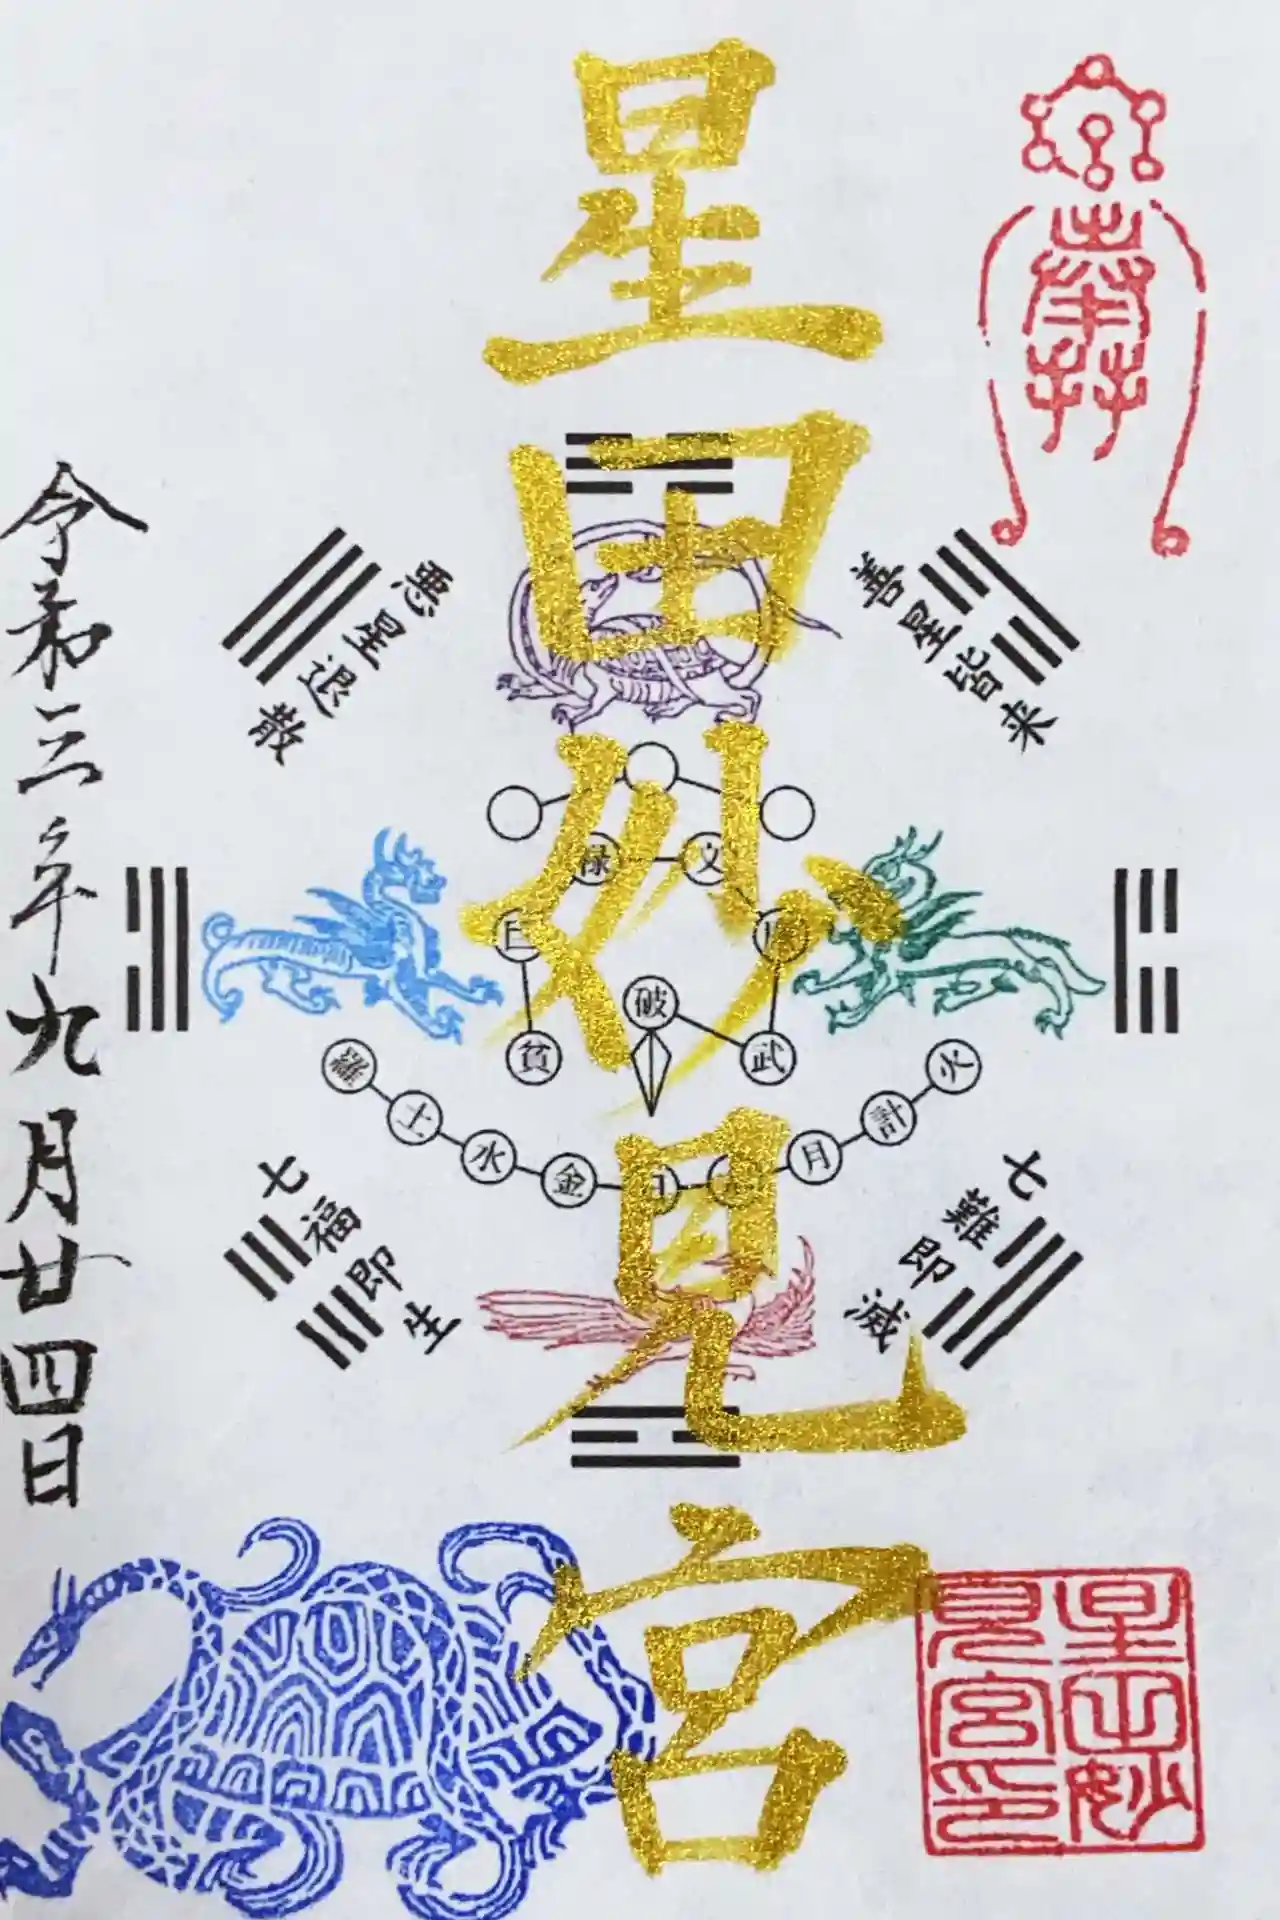 星田妙見宮
善星皆来
悪星退散
禄
文
巨
廉
貧
破
武
土
水
金
月
計
火
七難即滅
七福即生
令和三年九月廿四日
星田妙
見宮印